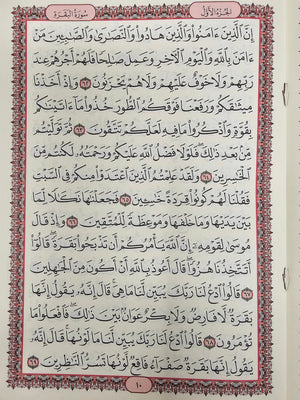 سُورَةُ البَقَرَةِ
الجُزْءُ الأَوَّلُ
إِنَّ الَّذِينَ ءَامَنُوا وَالَّذِينَ هَادُوا وَالنَّصَٰرَىٰ وَالصَّٰبِـِٔينَ مَنْ
ءَامَنَ بِاللَّهِ وَالْيَوْمِ الْءَاخِرِ وَعَمِلَ صَٰلِحًا فَلَهُمْ أَجْرُهُمْ عِندَ
رَبِّهِمْ وَلَا خَوْفٌ عَلَيْهِمْ وَلَا هُمْ يَحْزَنُونَ ٦٢ وَإِذْ أَخَذْنَا
مِيثَٰقَكُمْ وَرَفَعْنَا فَوْقَكُمُ الطُّورَ خُذُوا مَا ءَاتَيْنَٰكُم
بِقُوَّةٍ وَاذْكُرُوا مَا فِيهِ لَعَلَّكُمْ تَتَّقُونَ ٦٣ ثُمَّ تَوَلَّيْتُم
مِّنۢ بَعْدِ ذَٰلِكَ فَلَوْلَا فَضْلُ اللَّهِ عَلَيْكُمْ وَرَحْمَتُهُۥ لَكُنتُم
مِّنَ الْخَٰسِرِينَ ٦٤ وَلَقَدْ عَلِمْتُمُ الَّذِينَ اعْتَدَوْا مِنكُمْ فِي السَّبْتِ
فَقُلْنَا لَهُمْ كُونُوا قِرَدَةً خَٰسِـِٔينَ ٦٥ فَجَعَلْنَٰهَا نَكَٰلًا لِّمَا
بَيْنَ يَدَيْهَا وَمَا خَلْفَهَا وَمَوْعِظَةً لِّلْمُتَّقِينَ ٦٦ وَإِذْ قَالَ
مُوسَىٰ لِقَوْمِهِۦٓ إِنَّ اللَّهَ يَأْمُرُكُمْ أَن تَذْبَحُوا بَقَرَةً قَالُوٓا
أَتَتَّخِذُنَا هُزُوًا قَالَ أَعُوذُ بِاللَّهِ أَنْ أَكُونَ مِنَ الْجَٰهِلِينَ
٦٧ قَالُوا ادْعُ لَنَا رَبَّكَ يُبَيِّن لَّنَا مَا هِيَ قَالَ إِنَّهُۥ يَقُولُ إِنَّهَا
بَقَرَةٌ لَّا فَارِضٌ وَلَا بِكْرٌ عَوَانٌۢ بَيْنَ ذَٰلِكَ فَافْعَلُوا مَا
تُؤْمَرُونَ ٦٨ قَالُوا ادْعُ لَنَا رَبَّكَ يُبَيِّن لَّنَا مَا لَوْنُهَا قَالَ إِنَّهُۥ
يَقُولُ إِنَّهَا بَقَرَةٌ صَفْرَآءُ فَاقِعٌ لَّوْنُهَا تَسُرُّ النَّٰظِرِينَ ٦٩
١٠